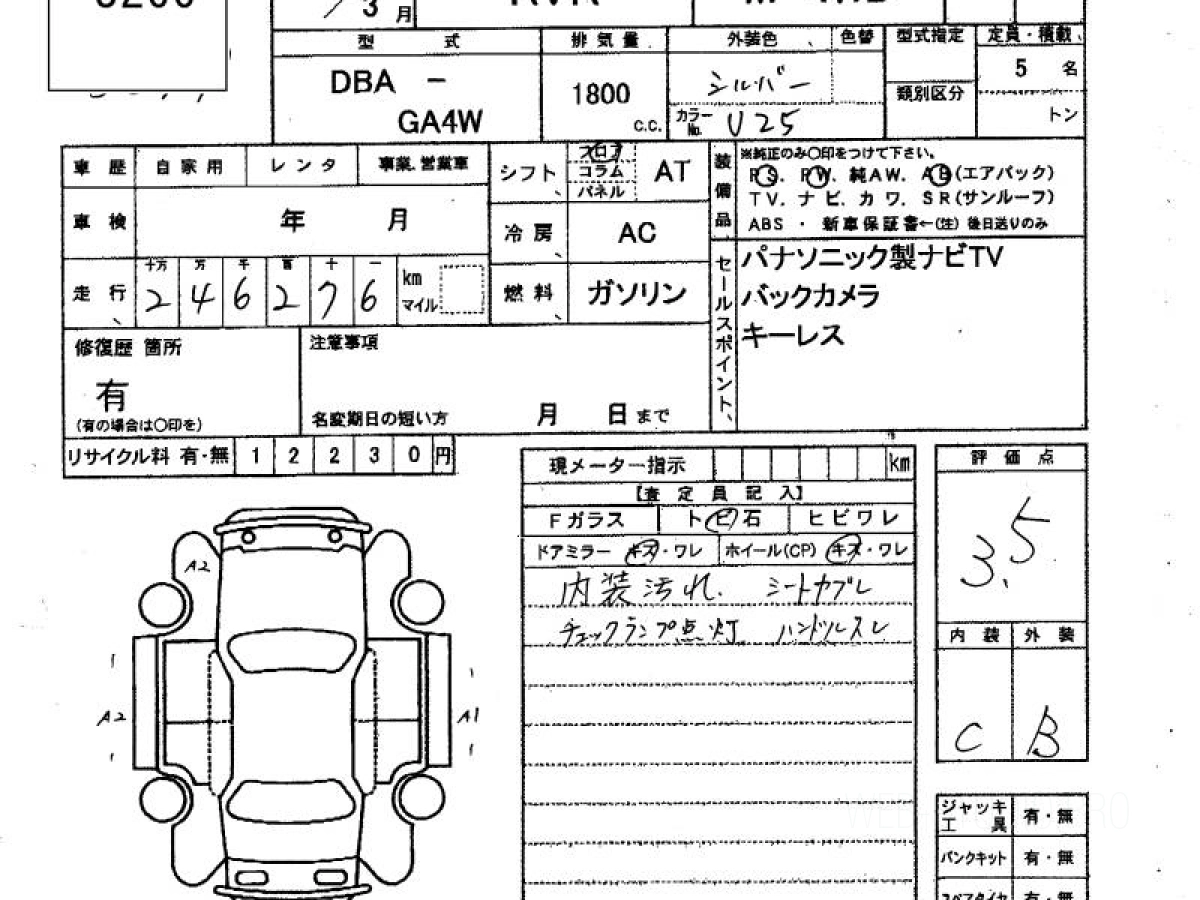 3月
型 式
排気量
外装色
色替
型式指定
定員・積載
DBA -
GA4W
1800
C.C.
シルバー
カラーNo.
U25
類別区分
5 名
トン
車歴
自家用
レンタ
事業.営業車
シフト
フロア
コラム
パネル
AT
装備品
※純正のみ〇印をつけて下さい。
PS. PW. 純AW. AB(エアバック)
TV. ナビ. カワ. SR(サンルーフ)
ABS ・ 新車保証書←(注) 後日送りのみ
車検
年 月
冷房
AC
走行
十万 万 千 百 十 一
2 4 6 2 7 6
km
マイル
燃料
ガソリン
セールスポイント
パナソニック製ナビTV
バックカメラ
キーレス
修復歴 箇所
有
(有の場合は〇印を)
注意事項
名変期日の短い方 月 日まで
リサイクル料 有・無 1 2 2 3 0 円
現メーター指示
km
【査定員記入】
Fガラス
トビ石
ヒビワレ
ドアミラー キズ・ワレ
ホイール(CP) キズ・ワレ
内装汚れ. シートヤブレ
チェックランプ点灯 ハンドルスレ
評価点
3.5
内装
外装
C
B
A2
A2
A1
ジャッキ工具
有・無
パンクキット
有・無
スペアタイヤ
有・無